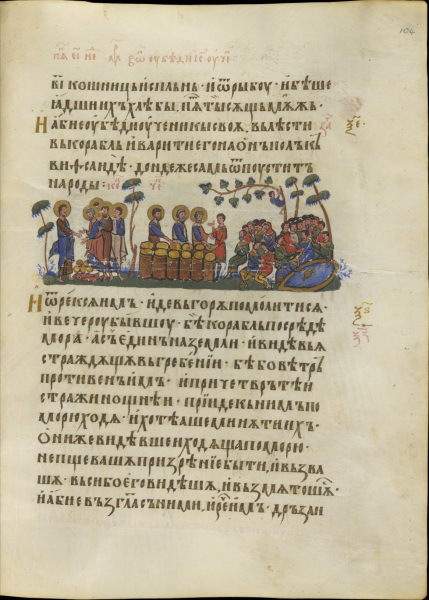 104
ві кошницы испльнь · и ѿ рыбоу · и бѣше
ꙗдшиихъ хлѣбы, пѧть тысѧщь мѫжь ·
И абие оубѣди оученикы своѧ, вълѣсти
въ корабль и варити его на онъ полъ къ
виѳсаидѣ · дондеже самъ ѿпоуститъ
народы :
И ѿрексѧ имъ · иде въ горѫ помолитисѧ ·
и вечероу бывшоу · бѣ корабль посрѣдѣ
морꙗ · а съ единъ на земли · и видѣвъ ѧ
страждѫщѧ въ гребении · бѣ бо вѣтръ
противенъ имъ · и при четврътѣи
стражи нощнѣи · прииде къ нимъ по
морю ходѧ · и хотѣаше минѫти ихъ ·
Они же видѣвше и ходѧща по морю ·
непщевашѧ призрѣние быти, и възва
шѧ · вьси бо его видѣшѧ, и възмѧтошѧ ·
и абие възгла съ ними, и рече имъ · дръзаи